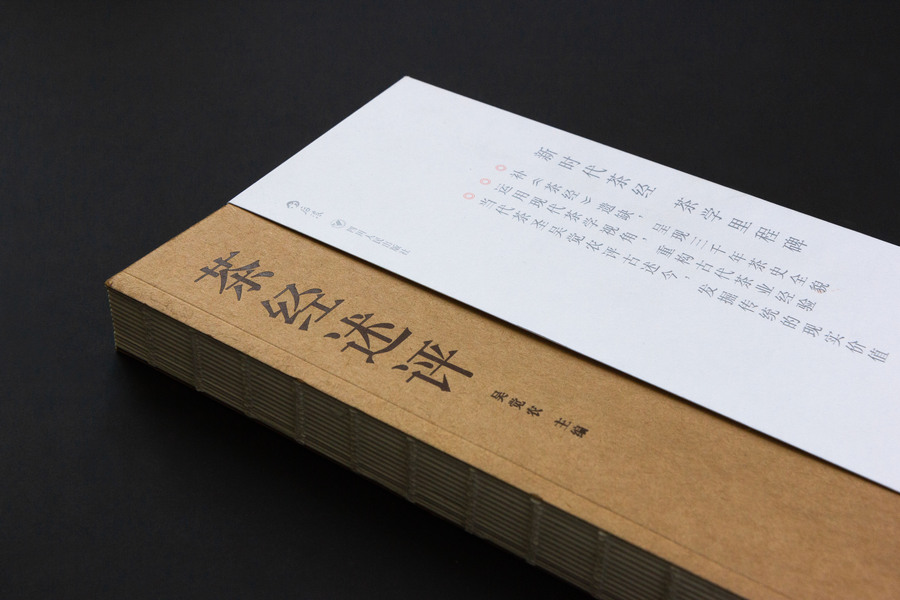 新时代茶经 茶学里程碑
补《茶经》遗缺，呈现三千年茶史全貌
运用现代茶学视角，重构古代茶业经验
当代茶圣吴觉农评古述今，发掘传统的现实价值
后浪
四川人民出版社
茶经述评
吴觉农 主编